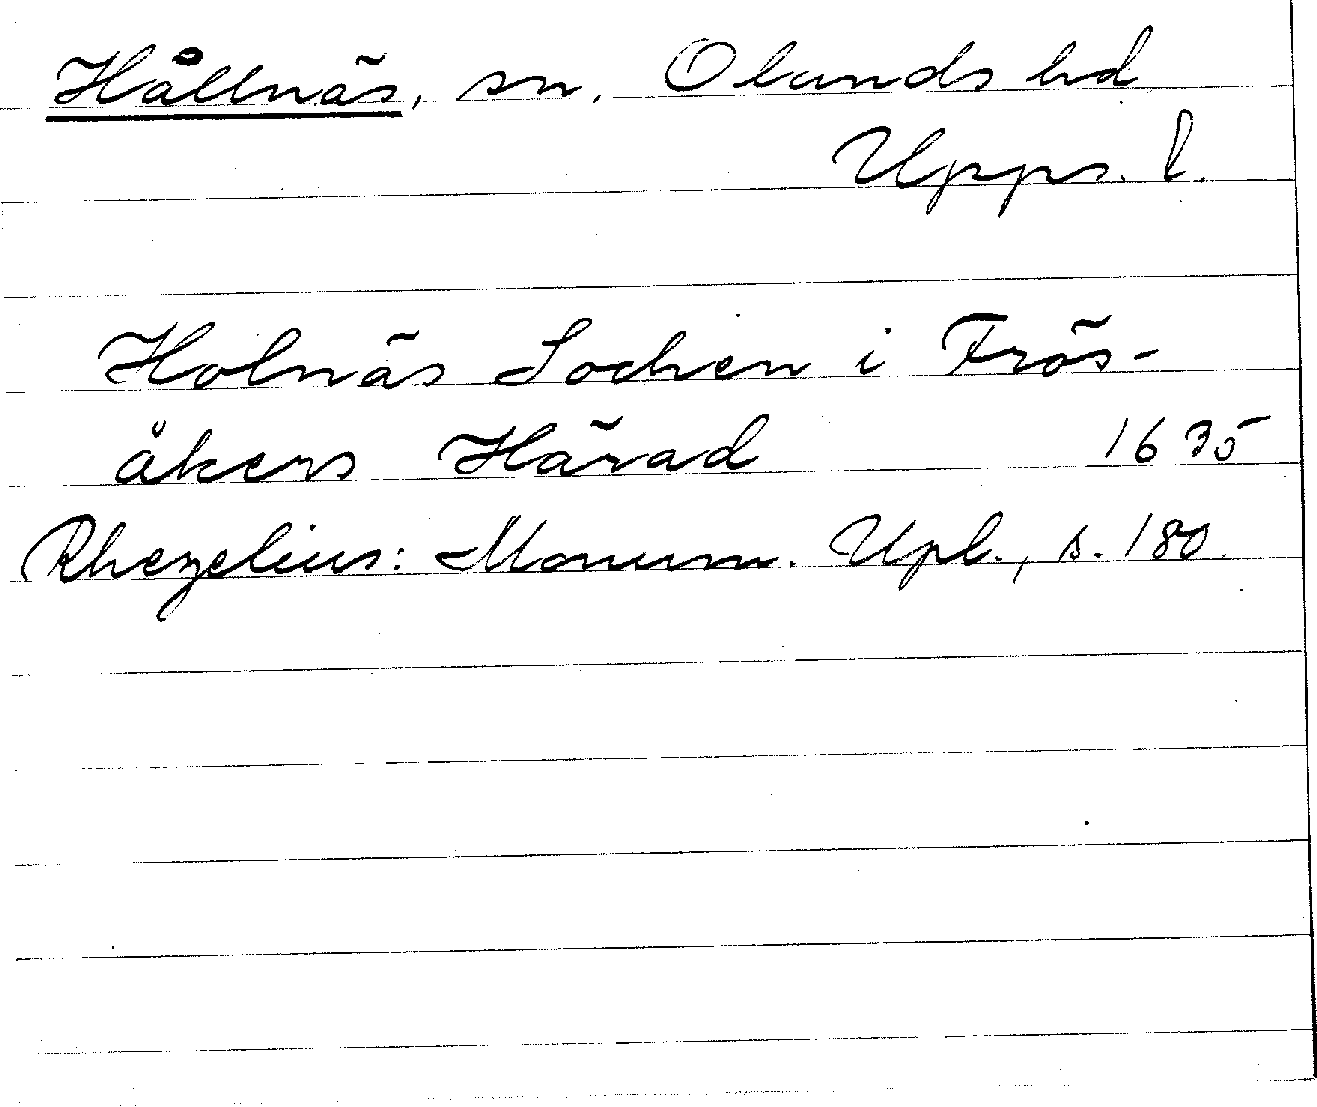 Hållnäs, sn, Olands hd
Upps. l.
Holnäs Sochen i Frös-
åkers Härad 1635
Rhezelius: Monum. Upl., s. 180